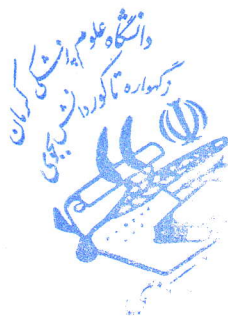 دانشگاه علوم پزشکی کرمان
ز گهواره تا گور دانش بجوی